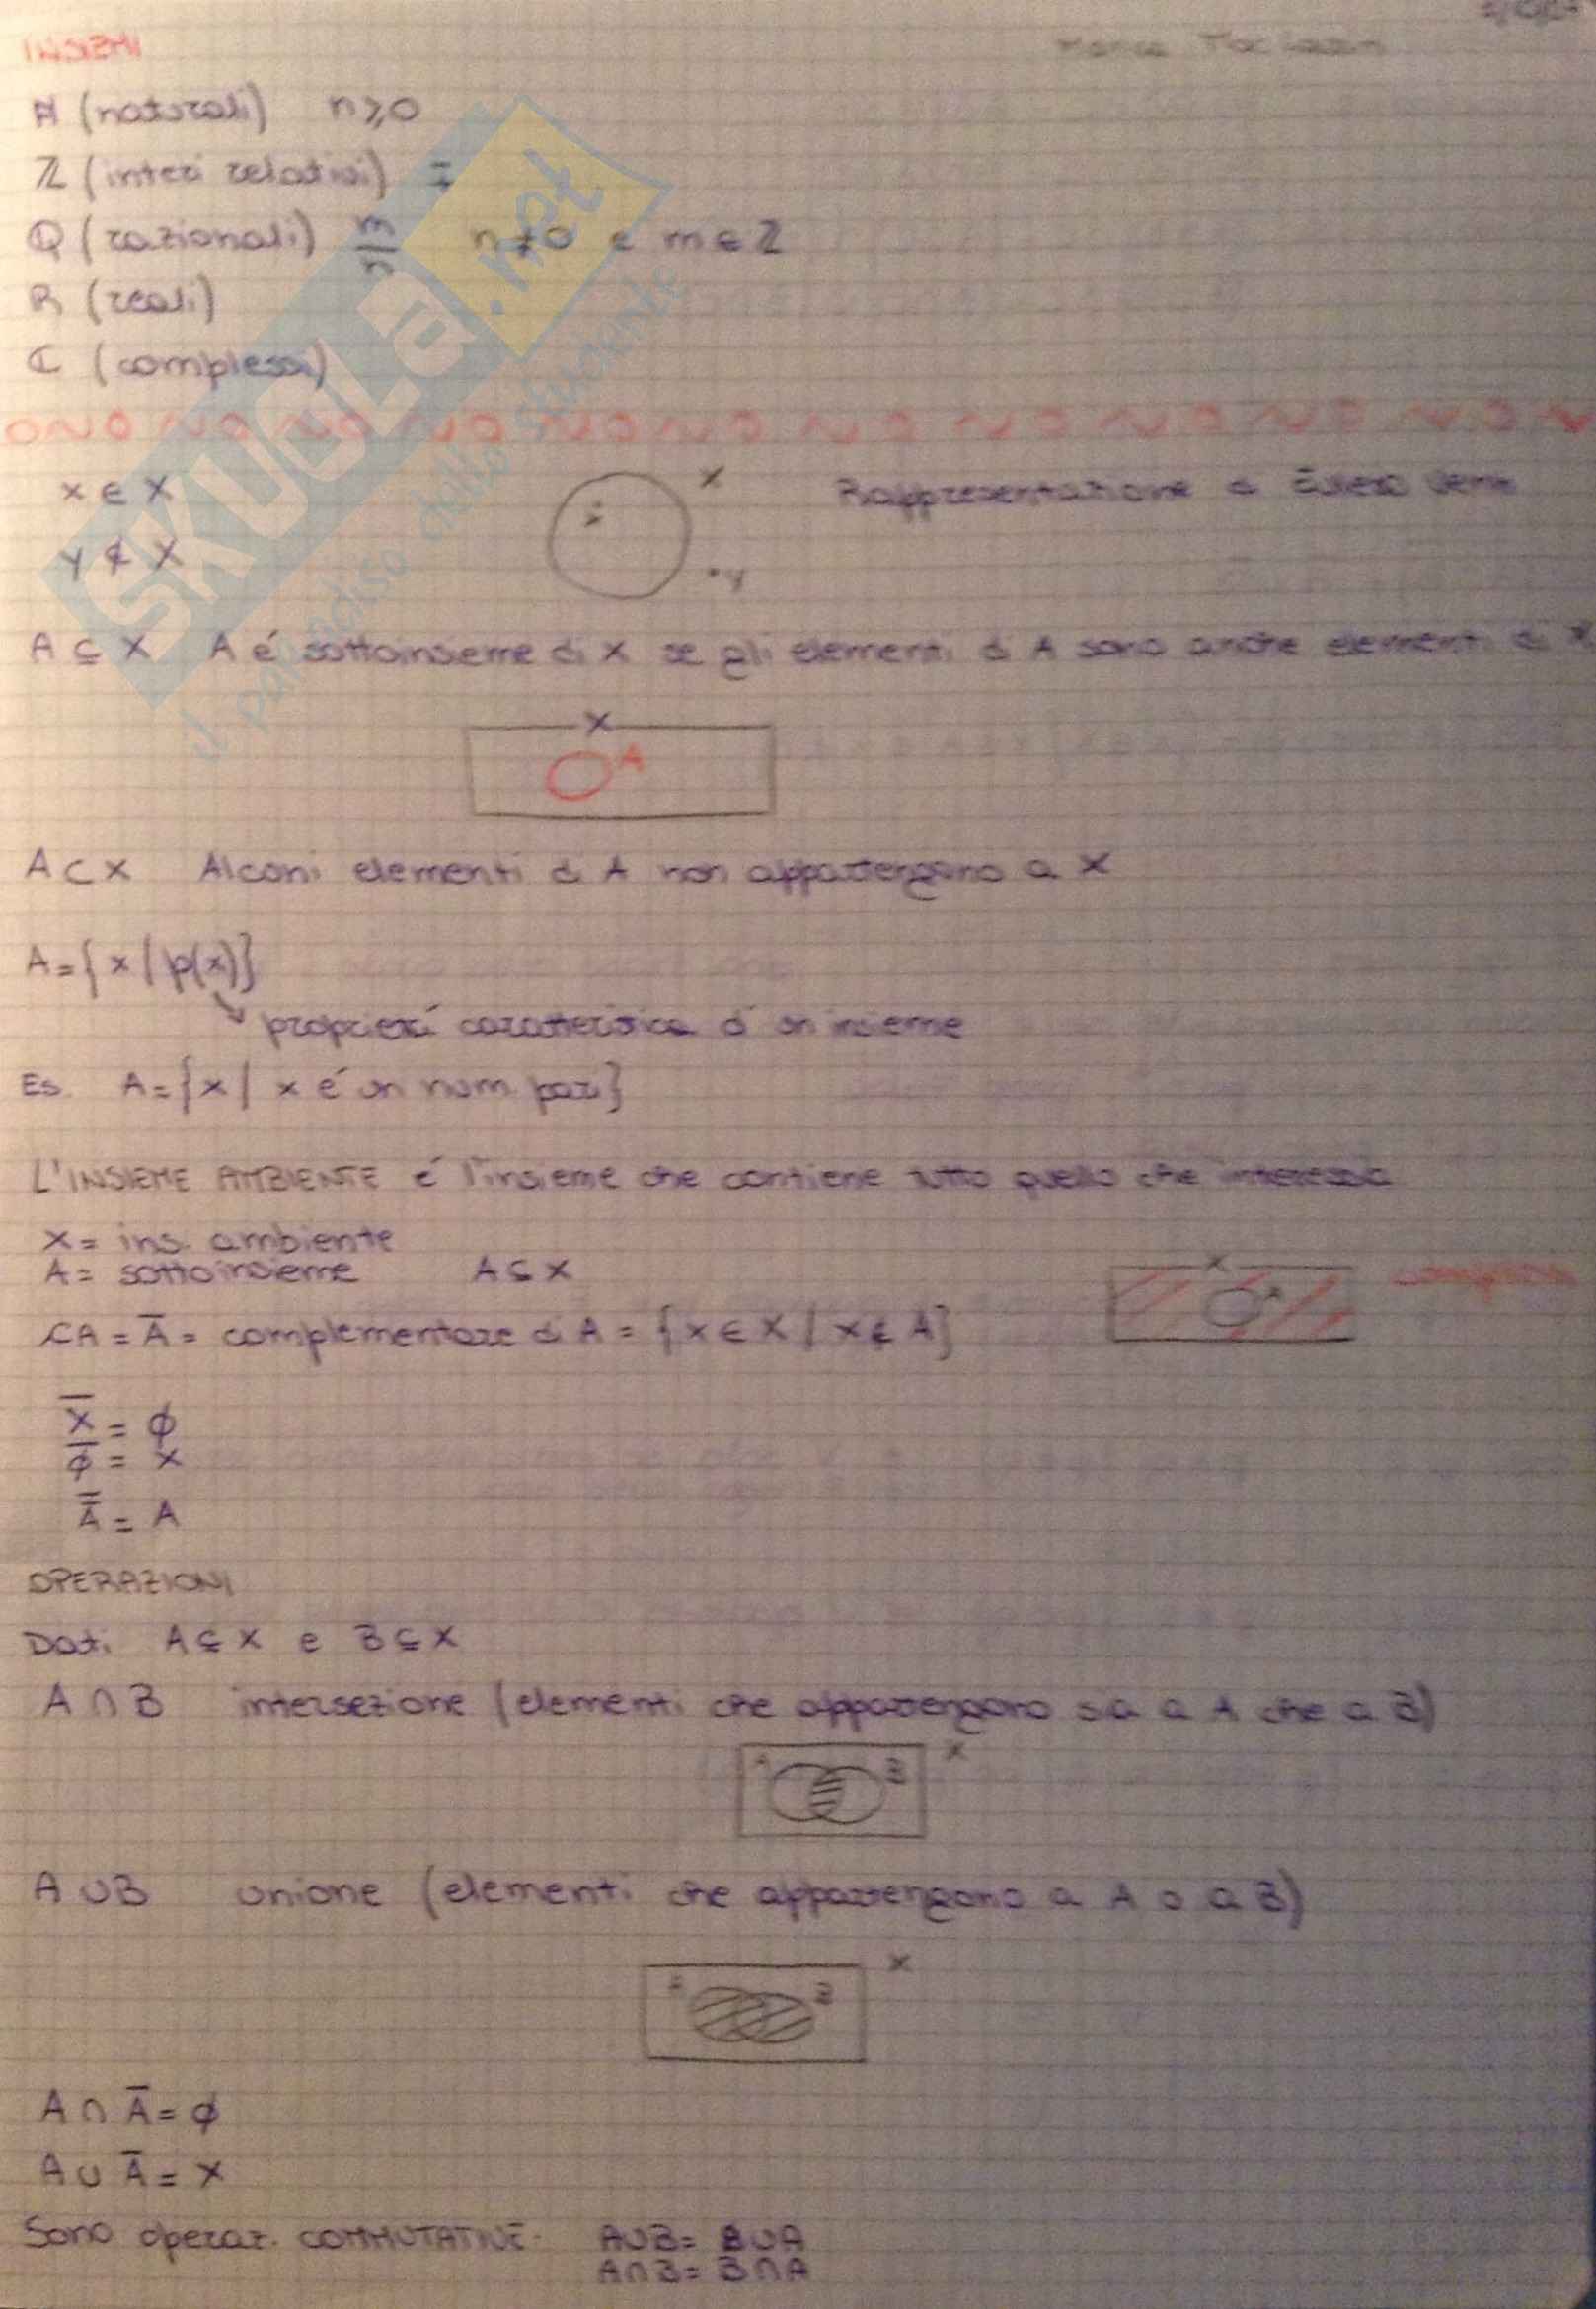 INSIEMI
N (naturali) n≥0
Z (interi relativi) ±
Q (razionali) m/n n≠0 e m∈Z
R (reali)
C (complessi)
x∈X
X
x
Rappresentazione di Eulero Venn
y∉X
y
A⊆X A é sottoinsieme di X se gli elementi di A sono anche elementi di X
X
A
A⊂X Alcuni elementi di A non appartengono a X
A={x|p(x)}
proprietá caratteristica di un insieme
Es. A={x| x é un num. pari}
L'INSIEME AMBIENTE é l'insieme che contiene tutto quello che interessa
X= ins. ambiente
A= sottoinsieme A⊆X
X
A
CA = A̅ = complementare di A = {x∈X | x∉A}
X̅ = ϕ
ϕ̅ = X
A̿ = A
OPERAZIONI
Dati A⊆X e B⊆X
A∩B intersezione (elementi che appartengono sia a A che a B)
A B X
A∪B unione (elementi che appartengono a A o a B)
A B X
A∩A̅=ϕ
A∪A̅=X
Sono operaz. COMMUTATIVE A∪B= B∪A
A∩B= B∩A
SKUOLA.net
il paradiso dello studente